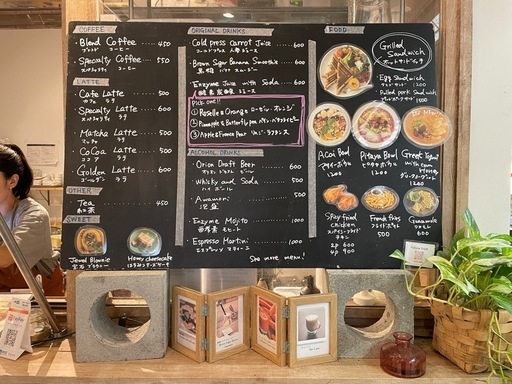 COFFEE
Blend Coffee 450
ブレンド コーヒー
Specialty Coffee 550
スペシャリティ コーヒー
LATTE
Cafe Latte 500
カフェ ラテ
Specialty Latte 600
スペシャリティ ラテ
Matcha Latte 500
マッチャ ラテ
CoCoa Latte 500
ココア ラテ
Golden Latte 600
ゴールデン ラテ
OTHER
Tea 450
紅茶
SWEET
Jewel Blownie
Honey cheesecake
はちみつチーズケーキ
ORIGINAL DRINKS
Cold press Carrot Juice 600
Brown Sugar Banana Smoothie 600
Enzyme Juice with Soda 600
Pick one!!
① Roselle & Orange ローゼル・オレンジ
② Pineapple & Butterfly pea
③ Apple & French Pear
ALCOHOL DRINKS
Orion Draft Beer 600
オリオン ドラフト ビール
Whisky and Soda 500
ハイボール
Awamori 500
泡盛
Enzyme Mojito 1000
モヒート
Espresso Martini 1000
エスプレッソ マティーニ
See more menu!
FOOD
Grilled
Sandwich
ホットサンドイッチ
Egg Sandwich
Pulled pork Sandwich
Acai Bowl
アサイーボウル
1200
Pitaya Bowl
ピタヤボウル
1200
1200
Spicy fried
chicken
スパイシーフライド
チキン
2p 600
4p 900
French fries
フライドポテト
500
Guacamole